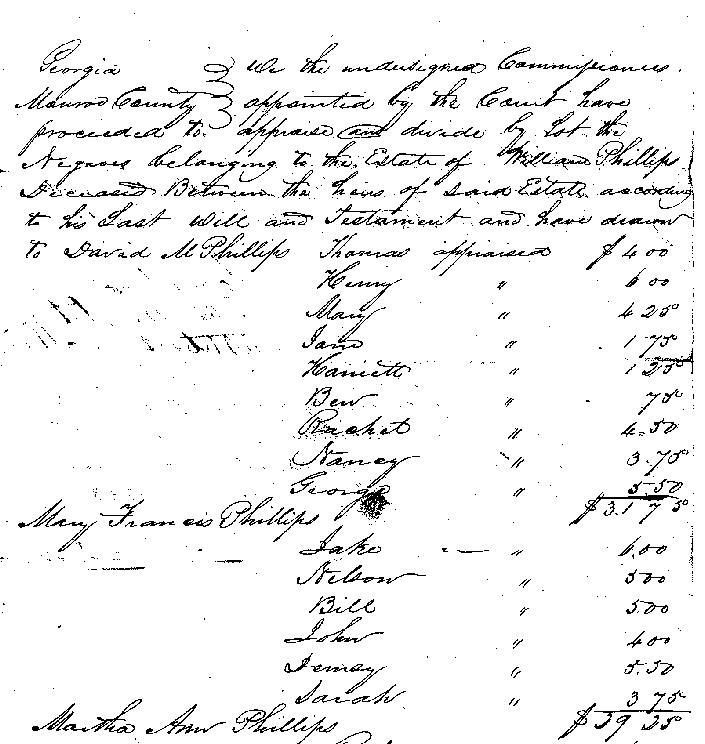 Georgia } We the undersigned Commissioners
Monroe County } appointed by the Court have
proceeded to appraise and divide by Lot the
Negroes belonging to the Estate of William Phillips
Deceased Between the heirs of said Estate according
to his Last Will and Testament and have drawn
to David M Phillips Thomas appraised $400
Henry " 600
Mary " 425
Jane " 175
Harriett " 125
Ben " 75
Rachel " 450
Nancy " 375
George " 550
$3175
Mary Francis Phillips
Jake " 600
Nelson " 500
Bill " 500
John " 400
Demcy " 550
Sarah " 375
$2925
Martha Ann Phillips